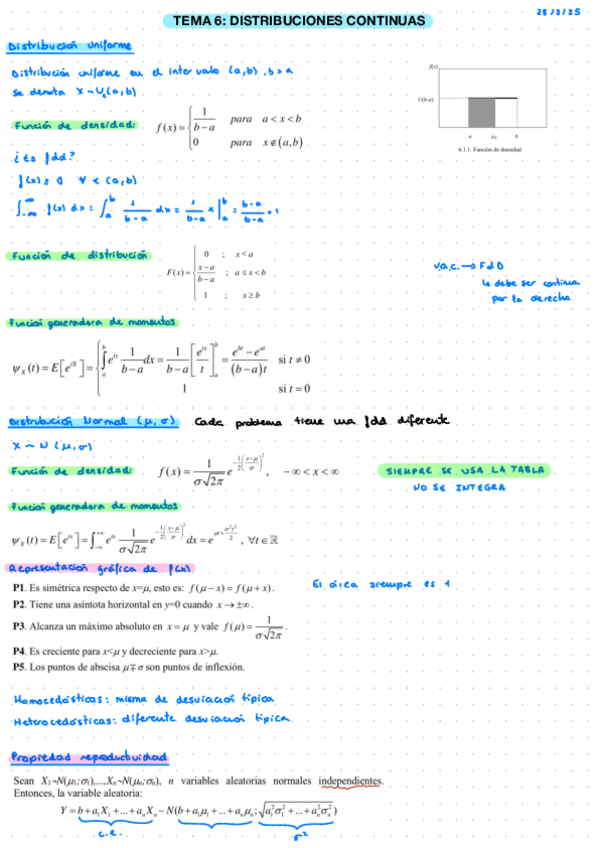 28/3/25
TEMA 6: DISTRIBUCIONES CONTINUAS
Distribución uniforme
Distribución uniforme en el intervalo (a,b), b>a
Se denota X ~ U(a,b)
Función de densidad: f(x) = { 1/(b−a) para a < x < b
0 para x ∉ (a,b)
f(x)
1/(b-a)
a μ b
6.1.1. Función de densidad
¿Es fdd?
f(x) ≥ 0 ∀ ∈ (a,b)
∫_{-∞}^{∞} f(x) dx = ∫_a^b 1/(b-a) dx = 1/(b-a) x |_a^b = (b-a)/(b-a) = 1
Función de distribución F(x) = { 0 ; x < a
(x−a)/(b−a) ; a ≤ x < b
1 ; x ≥ b
v.a.c. → FdD
↳ debe ser continua
por la derecha
Función generadora de momentos
ψ_X(t) = E[e^{tX}] = { ∫_a^b e^{tx} 1/(b−a) dx = 1/(b−a) [e^{tx}/t]_a^b = (e^{bt} − e^{at})/((b−a)t) si t ≠ 0
1 si t = 0
Distribución Normal (μ, σ) Cada problema tiene una fdd diferente
X ~ N(μ, σ)
Función de densidad: f(x) = 1/(σ√2π) e^{−1/2((x−μ)/σ)²}, −∞ < x < ∞
SIEMPRE SE USA LA TABLA
NO SE INTEGRA
Función generadora de momentos
ψ_X(t) = E[e^{tx}] = ∫_{−∞}^{+∞} e^{tx} 1/(σ√2π) e^{−1/2((x−μ)/σ)²} dx = e^{μt + σ²t²/2}, ∀t ∈ ℝ
Representación gráfica de f(x)
P1. Es simétrica respecto de x=μ, esto es: f(μ − x) = f(μ + x).
El área siempre es 1
P2. Tiene una asíntota horizontal en y=0 cuando x → ±∞.
P3. Alcanza un máximo absoluto en x = μ y vale f(μ) = 1/(σ√2π).
P4. Es creciente para x<μ y decreciente para x>μ.
P5. Los puntos de abscisa μ ∓ σ son puntos de inflexión.
Homocedásticas: misma de desviación típica
Heterocedásticas: diferente desviación típica
Propiedad reproductividad
Sean X₁~N(μ₁;σ₁),...,Xₙ~N(μₙ;σₙ), n variables aleatorias normales independientes.
Entonces, la variable aleatoria:
Y = b + a₁X₁ + ... + aₙXₙ ~ N(b + a₁μ₁ + ... + aₙμₙ; √(a₁²σ₁² + ... + aₙ²σₙ²))
σ²